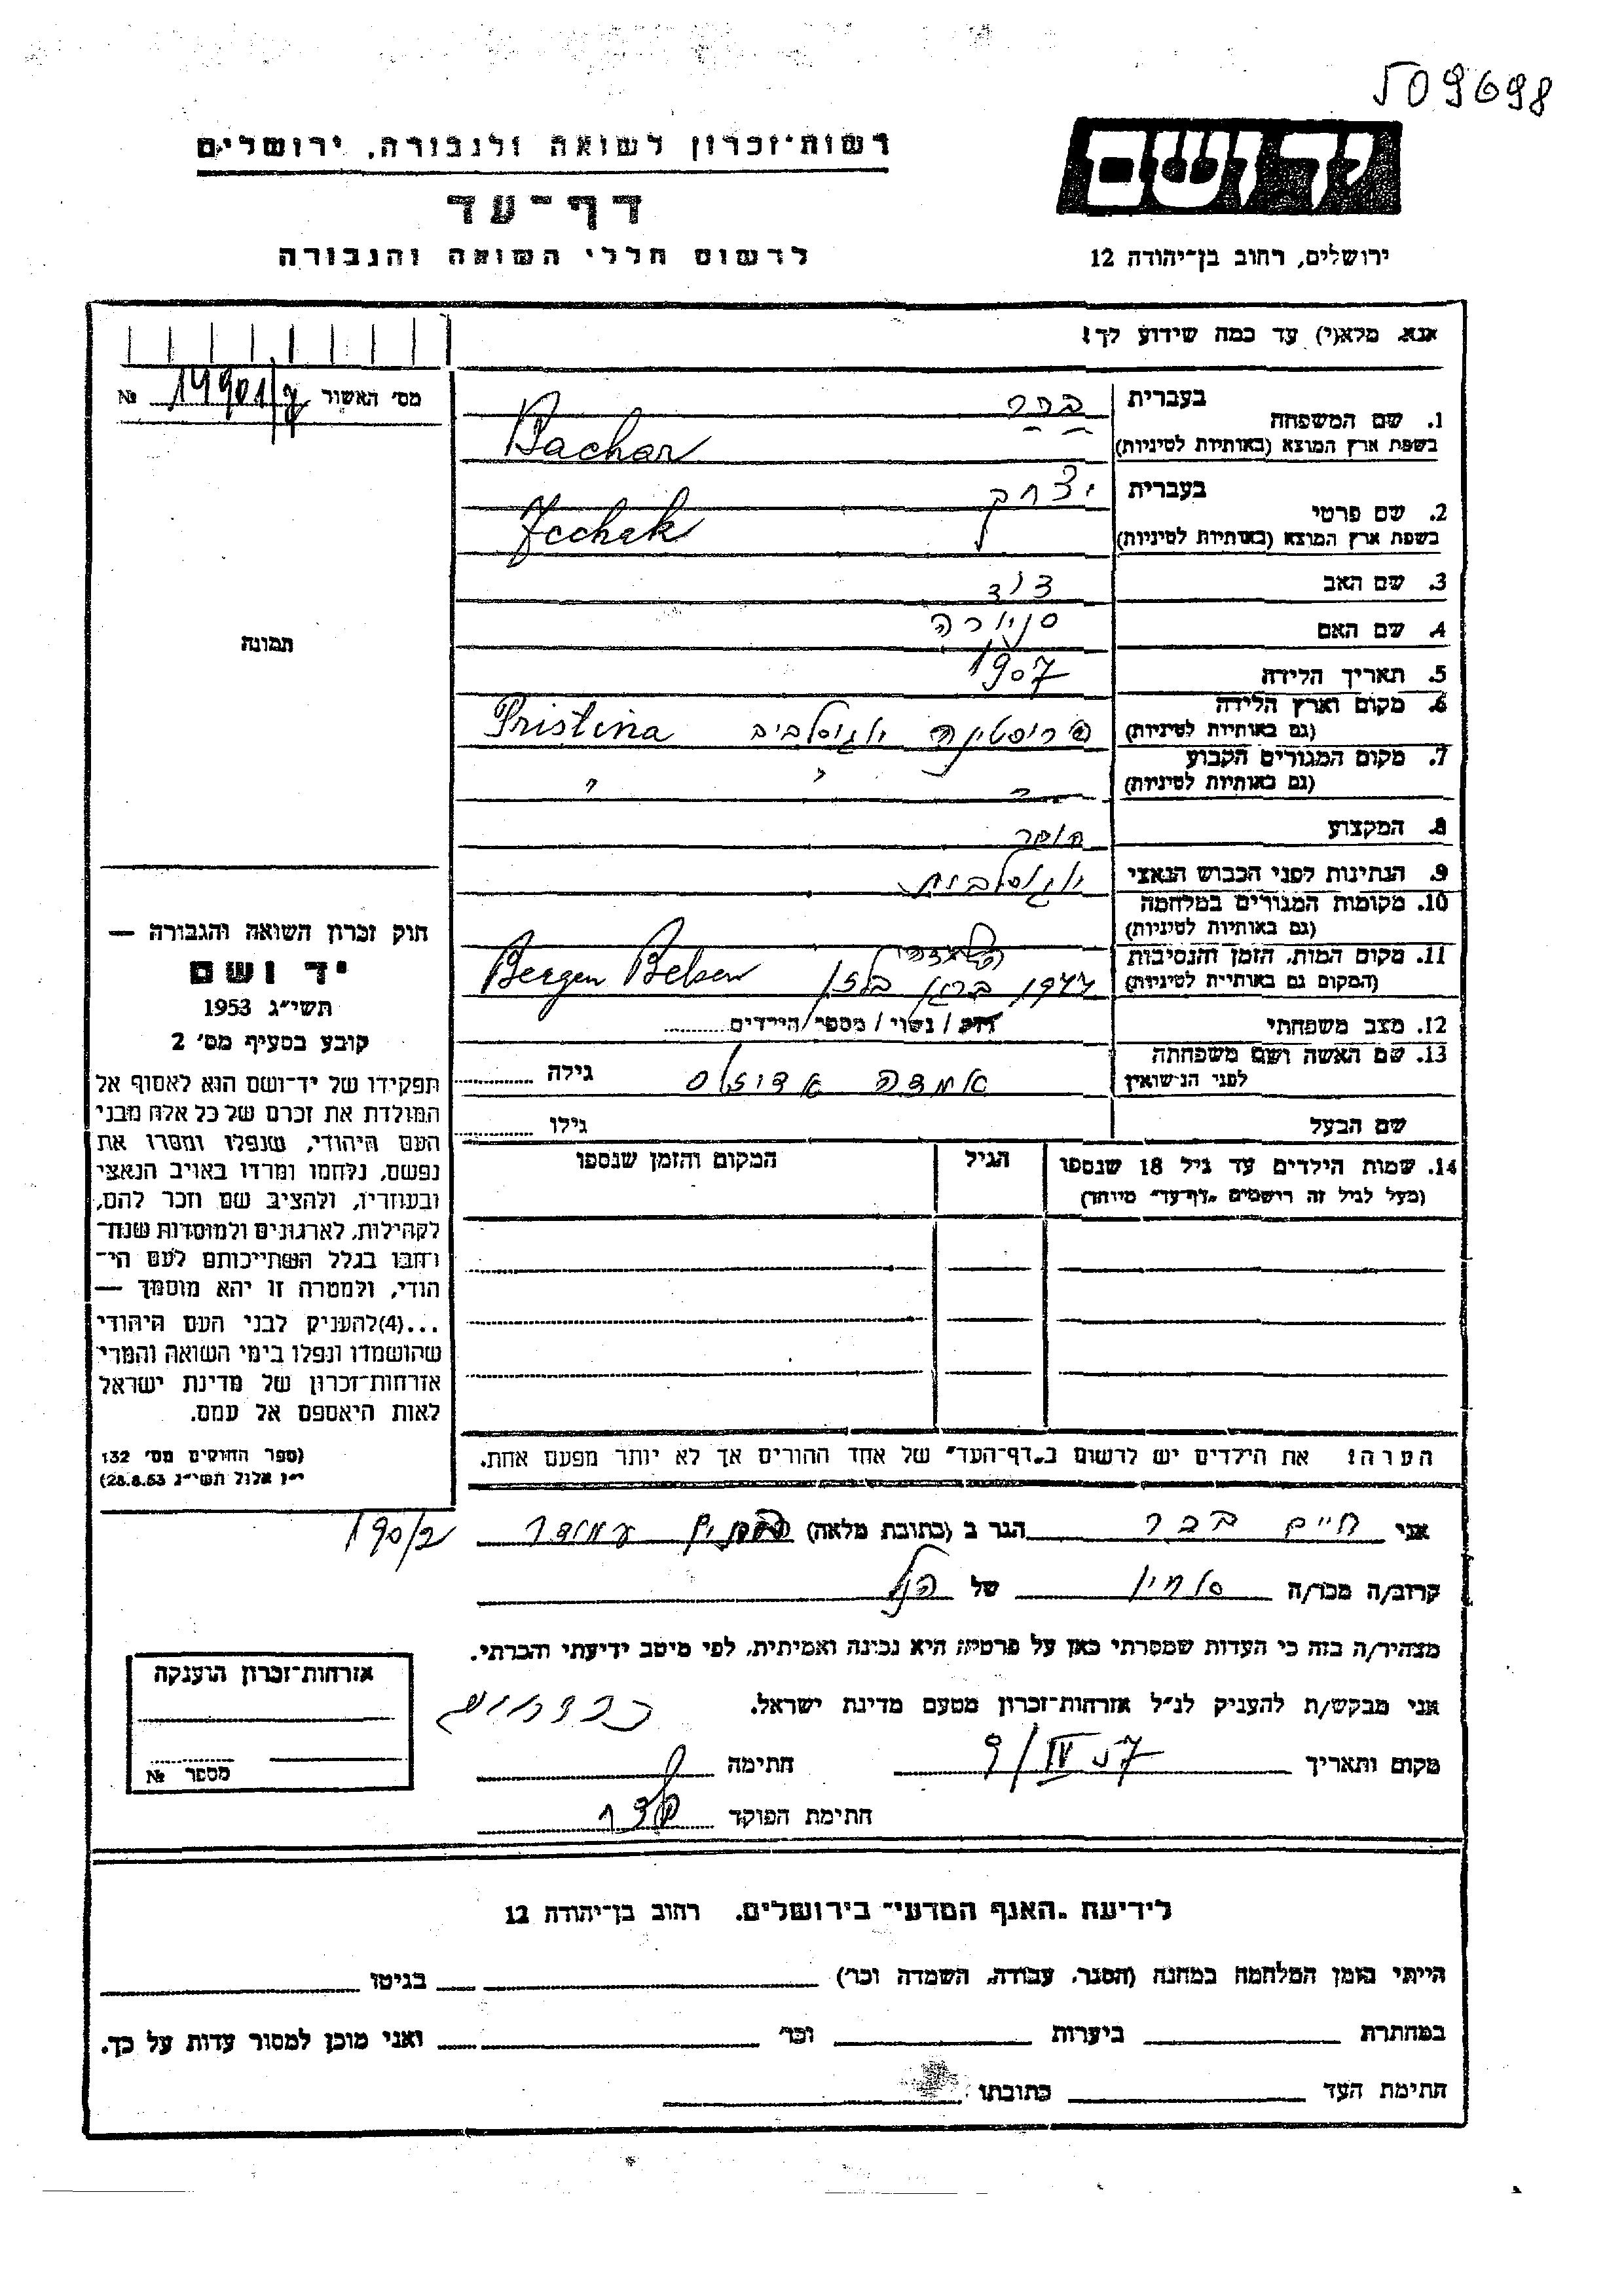 509698
יד ושם
רשות־זכרון לשואה ולגבורה, ירושלים
דף־עד
לרשום חללי השואה והגבורה
ירושלים, רחוב בן־יהודה 12
אנא, מלא(י) עד כמה שידוע לך!
מס׳ האשור № 14901/
1. שם המשפחה
בעברית בכר
בשפת ארץ המוצא (באותיות לטיניות) Bachar
2. שם פרטי
בעברית יצחק
בשפת ארץ המוצא (באותיות לטיניות) Icchak
3. שם האב דוד
4. שם האם סניורה
5. תאריך הלידה 1907
6. מקום וארץ הלידה
(גם באותיות לטיניות) פריסטינה יוגוסלביה Pristina
7. מקום המגורים הקבוע
(גם באותיות לטיניות) " " "
8. המקצוע סוחר
9. הנתינות לפני הכבוש הנאצי יוגוסלבית
10. מקומות המגורים במלחמה
(גם באותיות לטיניות)
11. מקום המות, הזמן והנסיבות
(המקום גם באותיות לטיניות) 1944 ברגן בלזן Bergen Belsen
12. מצב משפחתי רווק / נשוי / מספר הילדים
13. שם האשה ושם משפחתה
לפני הנשואין גילה
שם הבעל גילו
14. שמות הילדים עד גיל 18 שנספו
(מעל לגיל זה רושמים „דף־עד" מיוחד)
הגיל
המקום והזמן שנספו
הערה: את הילדים יש לרשום ב„דף־העד" של אחד ההורים אך לא יותר מפעם אחת.
תמונה
חוק זכרון השואה והגבורה —
יד ושם
תשי״ג 1953
קובע בסעיף מס׳ 2
תפקידו של יד־ושם הוא לאסוף אל
המולדת את זכרם של כל אלה מבני
העם היהודי, שנפלו ומסרו את
נפשם, נלחמו ומרדו באויב הנאצי
ובעוזריו, ולהציב שם וזכר להם,
לקהילות, לארגונים ולמוסדות שנח־
רבו בגלל השתייכותם לעם הי־
הודי, ולמטרה זו יהא מוסמך —
...(4) להעניק לבני העם היהודי
שהושמדו ונפלו בימי השואה והמרי
אזרחות־זכרון של מדינת ישראל
לאות היאספם אל עמם.
(ספר החוקים מס׳ 132
י״ז אלול תשי״ג 28.8.53)
אני חיים בכר הגר ב (כתובת מלאה) עמידר 190/2
קרוב/ה מכר/ה של הנ"ל
מצהיר/ה בזה כי העדות שמסרתי כאן על פרטיה היא נכונה ואמיתית, לפי מיטב ידיעתי והכרתי.
אני מבקש/ת להעניק לנ״ל אזרחות־זכרון מטעם מדינת ישראל.
מקום ותאריך 9/IV 57 חתימה
חתימת הפוקד
אזרחות־זכרון הוענקה
מספר №
לידיעת „האגף המדעי" בירושלים, רחוב בן־יהודה 12
הייתי בזמן המלחמה במחנה (הסגר, עבודה, השמדה וכו׳) בגיטו
במחתרת ביערות וכו׳ ואני מוכן למסור עדות על כך.
חתימת העד כתובתו